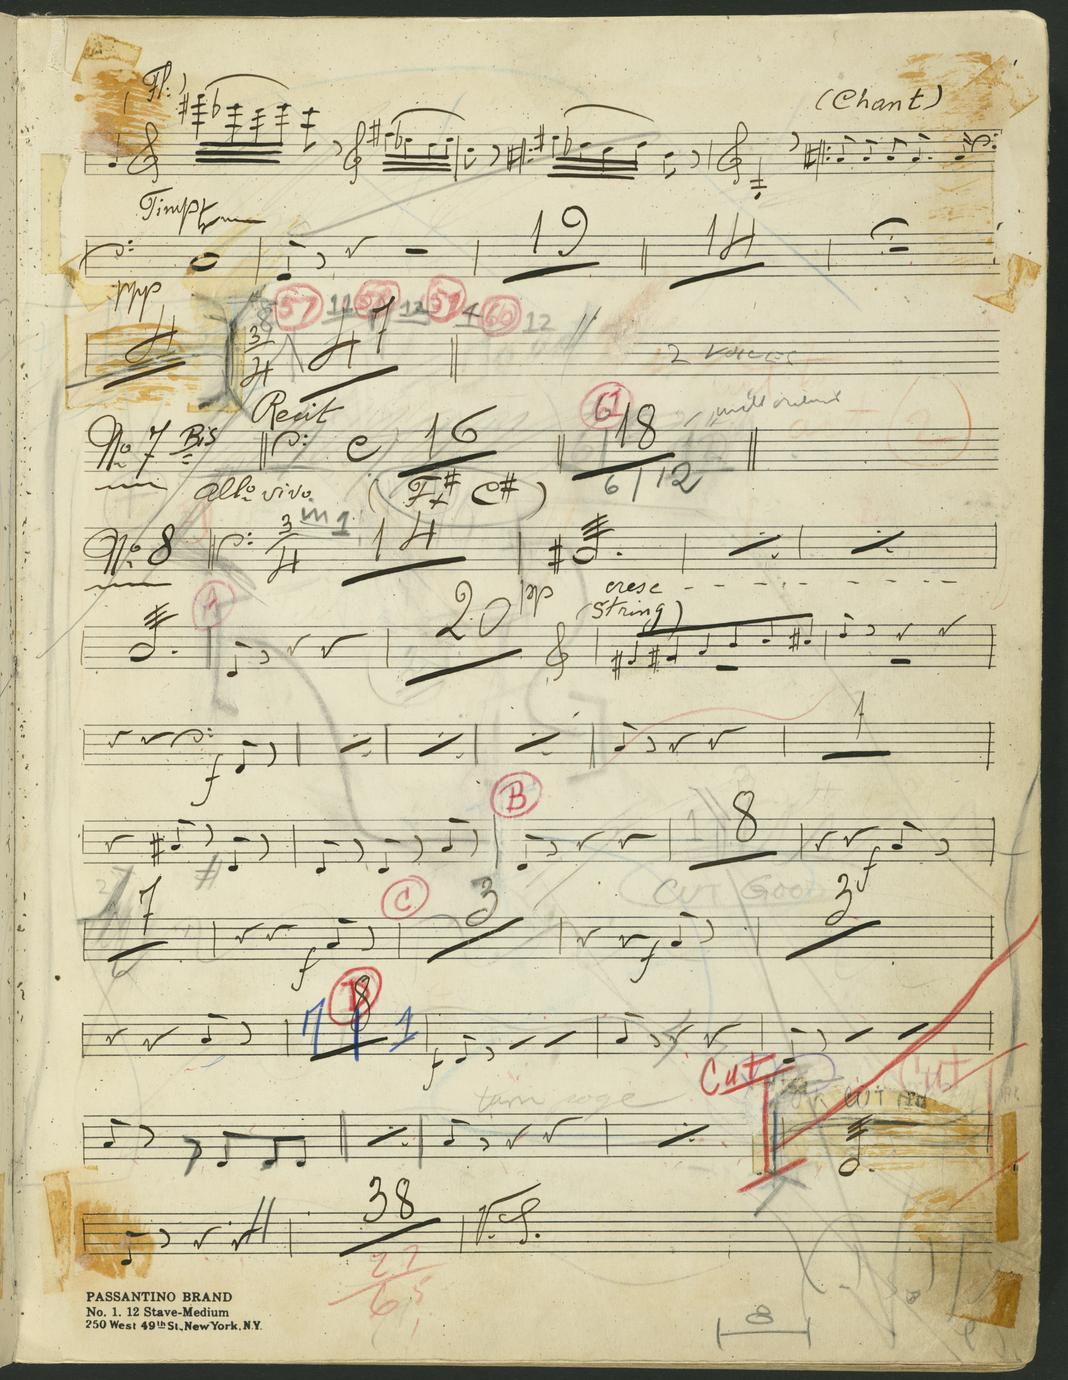 Fl: (Chant)
Timp
19 14
ppp
57 11 58 12 59 4 60 12
4 3/4 47
2 voices
Recit 61
No. 7 Bis C 16 18
6/12
Allo vivo (F# C#)
in 1
No. 8 3/4 14
pp cresc
A 20 (String)
f 1
B
8
f
CUT GOOD
7 C 3 3
f f
D
8
7 1
f
Cut Cut
turn page
38 V.S.
27
6
PASSANTINO BRAND
No. 1. 12 Stave-Medium
250 West 49th St., New York, N.Y.
8